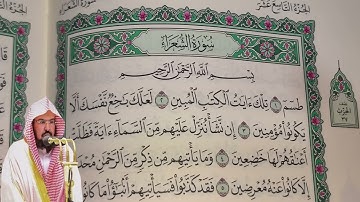 الجزء التاسع عشر
سُورَةُ الشُّعَرَاءِ
بِسْمِ اللَّهِ الرَّحْمَٰنِ الرَّحِيمِ
طسٓمٓ ١ تِلْكَ ءَايَٰتُ الْكِتَٰبِ الْمُبِينِ ٢ لَعَلَّكَ بَٰخِعٌ نَّفْسَكَ أَلَّا
يَكُونُوا۟ مُؤْمِنِينَ ٣ إِن نَّشَأْ نُنَزِّلْ عَلَيْهِم مِّنَ السَّمَآءِ ءَايَةً فَظَلَّتْ
أَعْنَٰقُهُمْ لَهَا خَٰضِعِينَ ٤ وَمَا يَأْتِيهِم مِّن ذِكْرٍ مِّنَ الرَّحْمَٰنِ
إِلَّا كَانُوا۟ عَنْهُ مُعْرِضِينَ ٥ فَقَدْ كَذَّبُوا۟ فَسَيَأْتِيهِمْ أَنۢبَٰٓؤُا۟ مَا كَانُوا۟